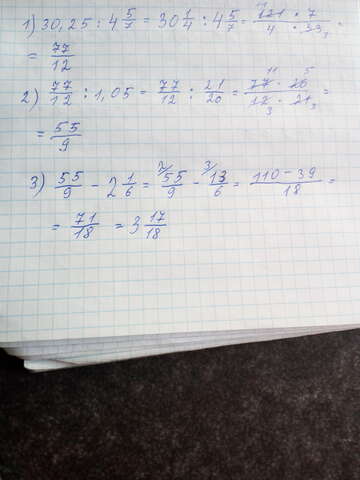 1) 30,25 : 4 5/7 = 30 1/4 : 4 5/7 = 11 121 · 7 / 4 · 33 3 =
= 77/12
2) 77/12 : 1,05 = 77/12 : 21/20 = 11 77 · 20 5 / 12 3 · 21 3 =
= 55/9
3) 55/9 - 2 1/6 = 2/ 55/9 - 3/ 13/6 = 110 - 39 / 18 =
= 71/18 = 3 17/18